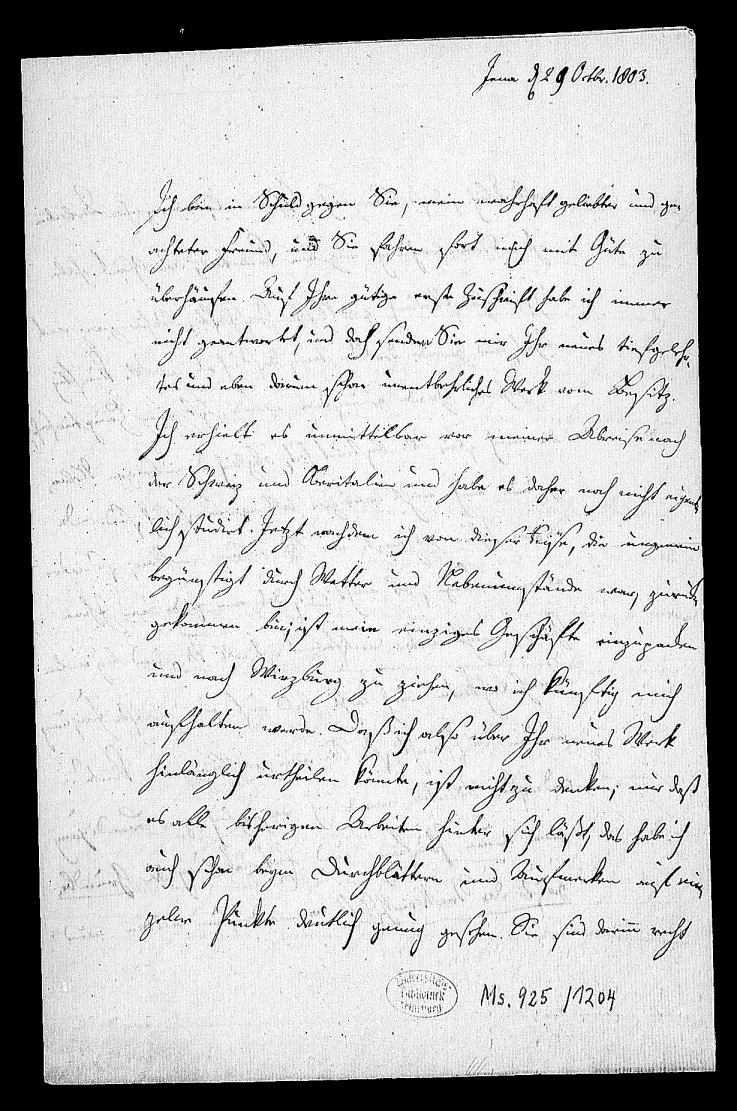 Jena d 29 Octbr. 1803.
Ich bin in Schuld gegen Sie, mein wahrhaft geliebter und ge-
achteter Freund, und Sie fahren fort mich mit Güte zu
überhäufen. Auf Ihre gütige erste Zuschrift habe ich immer
nicht geantwortet, und doch senden Sie mir Ihr neues tiefgelehr-
tes und eben darum schon unentbehrliches Werk vom Besitz.
Ich erhielt es unmittelbar vor meiner Abreise nach
der Schweiz und Oberitalien und habe es daher noch nicht eigent-
lich studirt. Jetzt nachdem ich von dieser Reise, die ungemein
begünstigt durch Wetter und Nebenumstände war, zurück
gekommen bin, ist mein einziges Geschäfte einzupacken
und nach Wirzburg zu ziehen, wo ich künftig mich
aufhalten werde. Daß ich also über Ihr neues Werk
hinlänglich urtheilen könnte, ist nicht zu denken; nur daß
es alle bisherigen Arbeiten hinter sich läßt, das habe ich
auch schon beym Durchblättern und Aufmerken auf ein-
zelne Punkte deutlich genug gesehen. Sie sind darinn recht
Ms. 925 /1204